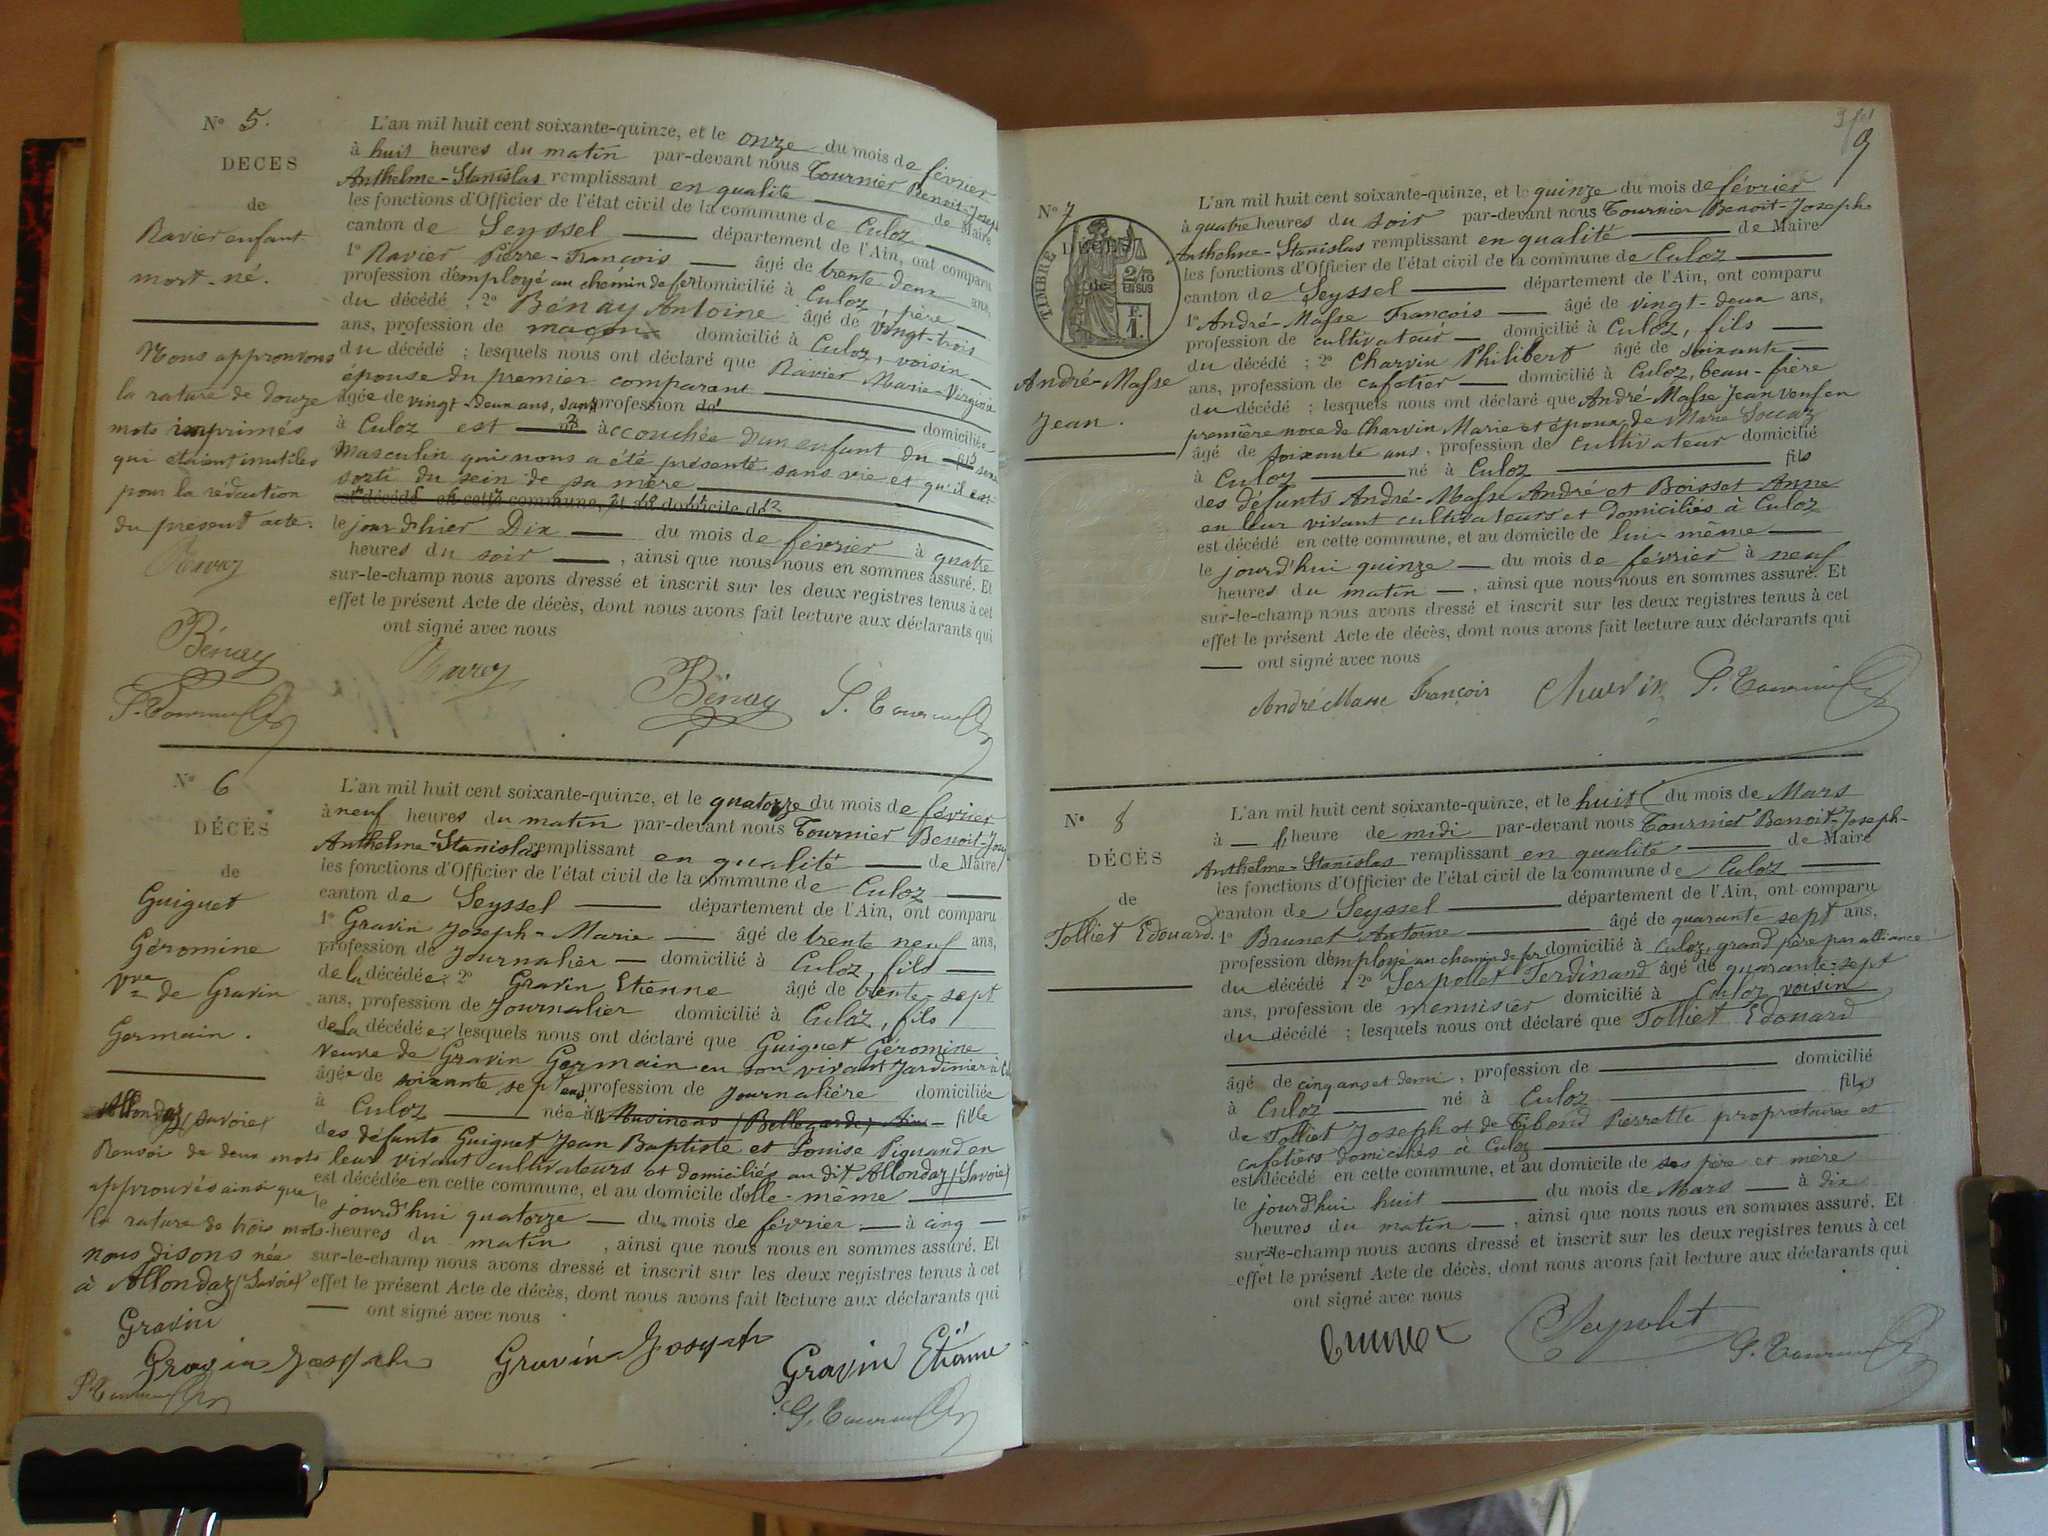 N° 5.
DECES
de
Ravier enfant
mort-né.
Nous approuvons
la rature de douze
mots imprimés
qui étaient inutiles
pour la rédaction
du présent acte.
Bénay
L'an mil huit cent soixante-quinze, et le onze du mois de février
à huit heures du matin par-devant nous Tournier Benoit-Joseph
Anthelme-Stanislas remplissant en qualité de Maire
les fonctions d'Officier de l'état civil de la commune de Culoz
canton de Seyssel département de l'Ain, ont comparu
1° Ravier Pierre-François âgé de trente deux ans,
profession d'employé au chemin de fer domicilié à Culoz, père
du décédé ; 2° Bénay Antoine âgé de vingt-trois
ans, profession de maçon domicilié à Culoz, voisin
du décédé ; lesquels nous ont déclaré que Ravier Marie-Virginie
épouse du premier comparant
âgée de vingt-deux ans, sans profession de domiciliée
à Culoz est né accouchée d'un enfant du fils sexe
Masculin qui nous a été présenté sans vie et qu'il est
sorti du sein de sa mère
est décédé en cette commune, et au domicile de
le jour d'hier Dix du mois de février à quatre
heures du soir , ainsi que nous nous en sommes assuré. Et
sur-le-champ nous avons dressé et inscrit sur les deux registres tenus à cet
effet le présent Acte de décès, dont nous avons fait lecture aux déclarants qui
ont signé avec nous
Bénay
N° 6
DÉCÈS
de
Guiguet
Géromine
Vve de Gravin
Germain.
Allondaz (Savoie)
Renvoi de deux mots
approuvés ainsi que
la rature de trois mots
nous disons née
à Allondaz (Savoie)
Gravin
Gravin Joseph
L'an mil huit cent soixante-quinze, et le quatorze du mois de février
à neuf heures du matin par-devant nous Tournier Benoit-Jos
Anthelme-Stanislas remplissant en qualité de Maire
les fonctions d'Officier de l'état civil de la commune de Culoz
canton de Seyssel département de l'Ain, ont comparu
1° Gravin Joseph-Marie âgé de trente neuf ans,
profession de Journalier domicilié à Culoz, fils
de la décédée, 2° Gravin Etienne âgé de trente-sept
ans, profession de Journalier domicilié à Culoz, fils
de la décédée, lesquels nous ont déclaré que Guiguet Géromine
veuve de Gravin Germain en son vivant Jardinier à
âgée de soixante sept ans, profession de journalière domiciliée
à Culoz née à (Bellegarde) Ain fille
des défunts Guiguet Jean Baptiste et Louise Piquand en
leur vivant cultivateurs et domiciliés au dit Allondaz (Savoie)
est décédée en cette commune, et au domicile d'elle-même
le jourd'hui quatorze du mois de février à cinq
heures du matin , ainsi que nous nous en sommes assuré. Et
sur-le-champ nous avons dressé et inscrit sur les deux registres tenus à cet
effet le présent Acte de décès, dont nous avons fait lecture aux déclarants qui
ont signé avec nous
Gravin Joseph
Gravin Etienne
9
N° 7
DÉCÈS
de
TIMBRE
2/10 EN SUS
F. 1.
André-Masse
Jean.
L'an mil huit cent soixante-quinze, et le quinze du mois de février
à quatre heures du soir par-devant nous Tournier Benoit-Joseph
Anthelme-Stanislas remplissant en qualité de Maire
les fonctions d'Officier de l'état civil de la commune de Culoz
canton de Seyssel département de l'Ain, ont comparu
1° André-Masse François âgé de vingt-deux ans,
profession de cultivateur domicilié à Culoz, fils
du décédé ; 2° Charvin Philibert âgé de soixante
ans, profession de cafetier domicilié à Culoz, beau-frère
du décédé ; lesquels nous ont déclaré que André-Masse Jean veuf en
première noce de Charvin Marie et époux de Marie
âgé de soixante ans, profession de cultivateur domicilié
à Culoz né à Culoz fils
des défunts André-Masse André et Boisset Anne
en leur vivant cultivateurs et domiciliés à Culoz
est décédé en cette commune, et au domicile de lui-même
le jourd'hui quinze du mois de février à neuf
heures du matin , ainsi que nous nous en sommes assuré. Et
sur-le-champ nous avons dressé et inscrit sur les deux registres tenus à cet
effet le présent Acte de décès, dont nous avons fait lecture aux déclarants qui
ont signé avec nous
André Masse François Charvin
N° 8
DÉCÈS
de
Tolliet Edouard.
L'an mil huit cent soixante-quinze, et le huit du mois de Mars
à heure de midi par-devant nous Tournier Benoit-Joseph-
Anthelme-Stanislas remplissant en qualité de Maire
les fonctions d'Officier de l'état civil de la commune de Culoz
canton de Seyssel département de l'Ain, ont comparu
1° Brunet Antoine âgé de quarante sept ans,
profession d'employé au chemin de fer domicilié à Culoz, grand père par alliance
du décédé ; 2° Serpollet Ferdinand âgé de quarante-sept
ans, profession de menuisier domicilié à Culoz voisin
du décédé ; lesquels nous ont déclaré que Tolliet Edouard
âgé de cinq ans et demi, profession de domicilié
à Culoz né à Culoz fils
de Tolliet Joseph et de Pierrette propriétaires et
cafetiers domiciliés à Culoz
est décédé en cette commune, et au domicile de ses père et mère
le jourd'hui huit du mois de Mars à dix
heures du matin , ainsi que nous nous en sommes assuré. Et
sur-le-champ nous avons dressé et inscrit sur les deux registres tenus à cet
effet le présent Acte de décès, dont nous avons fait lecture aux déclarants qui
ont signé avec nous